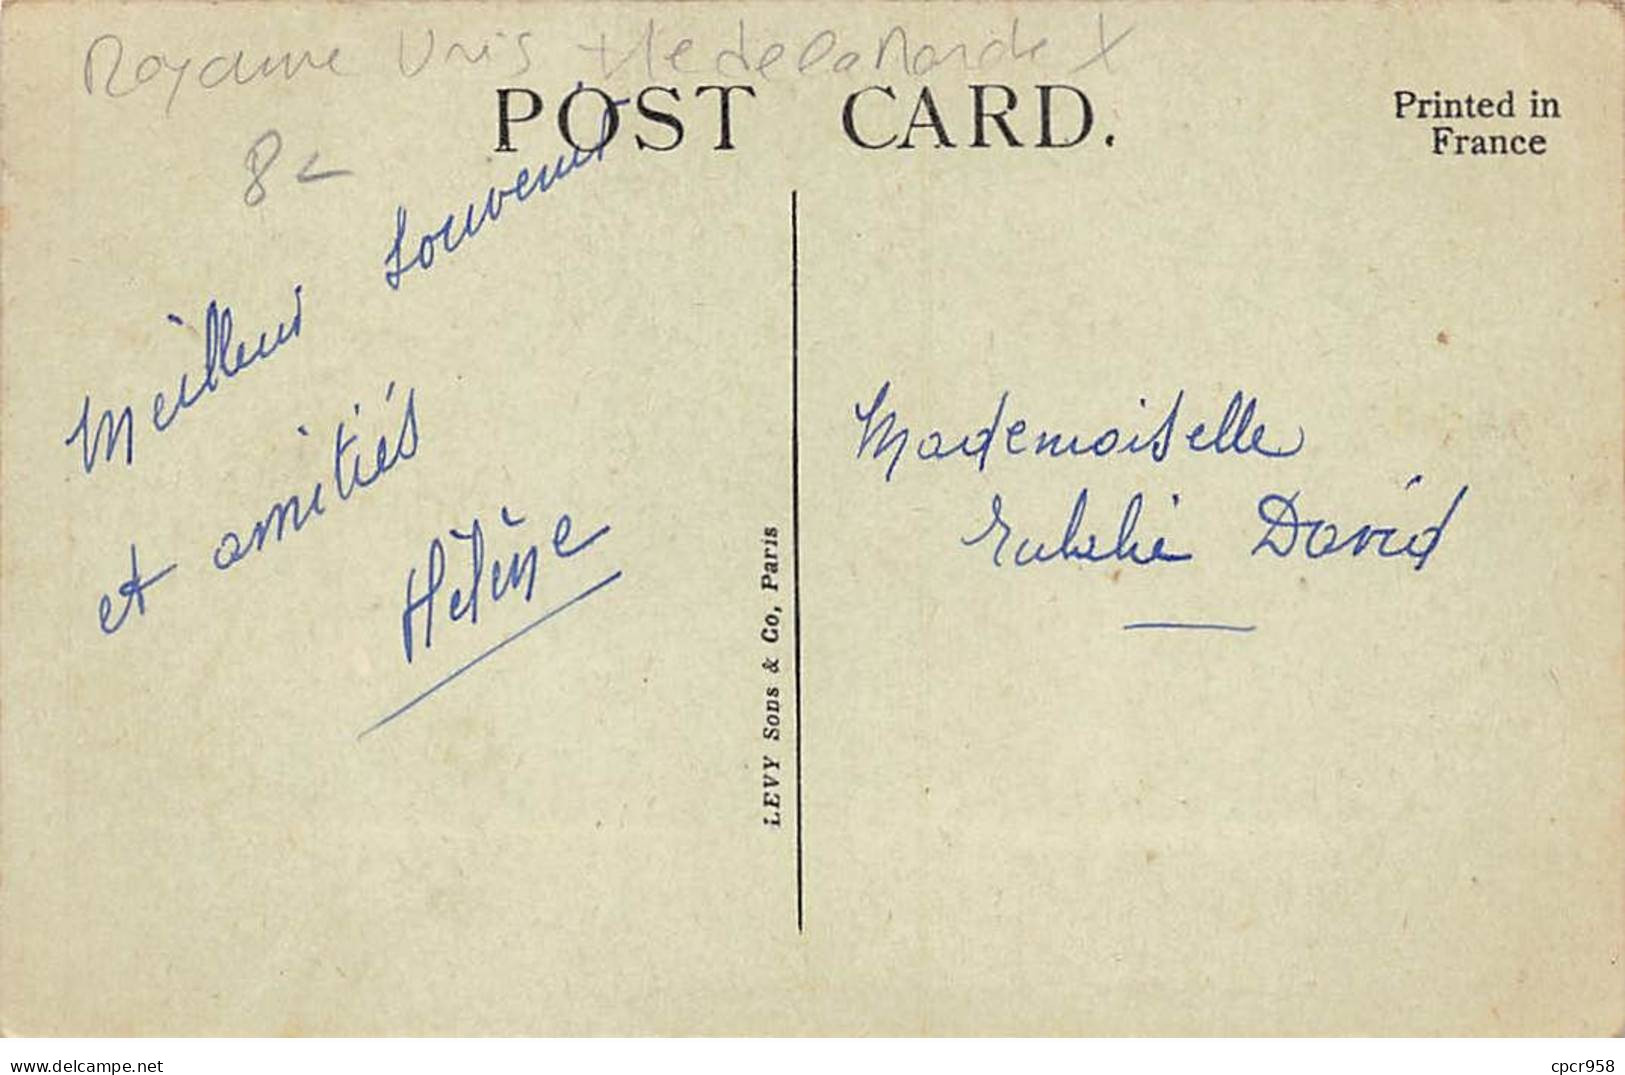 Royaume Unis Ile de la Manche X
POST CARD.
Printed in
France
8
Meilleur souvenir
et amitiés
Hélène
LEVY Sons & Co, Paris
Mademoiselle
David
delcampe.net
cpcr958